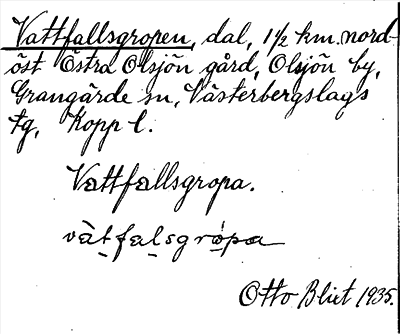 Vattfallsgropen, dal, 1½ km. nord-
öst Östra Olsjön gård, Olsjön by,
Grangärde sn, Västerbergslags
tg, Kopp l.
Vattfallsgropa.
vàt̠fa̠l̠sgró̠pa
Otto Blixt 1935.